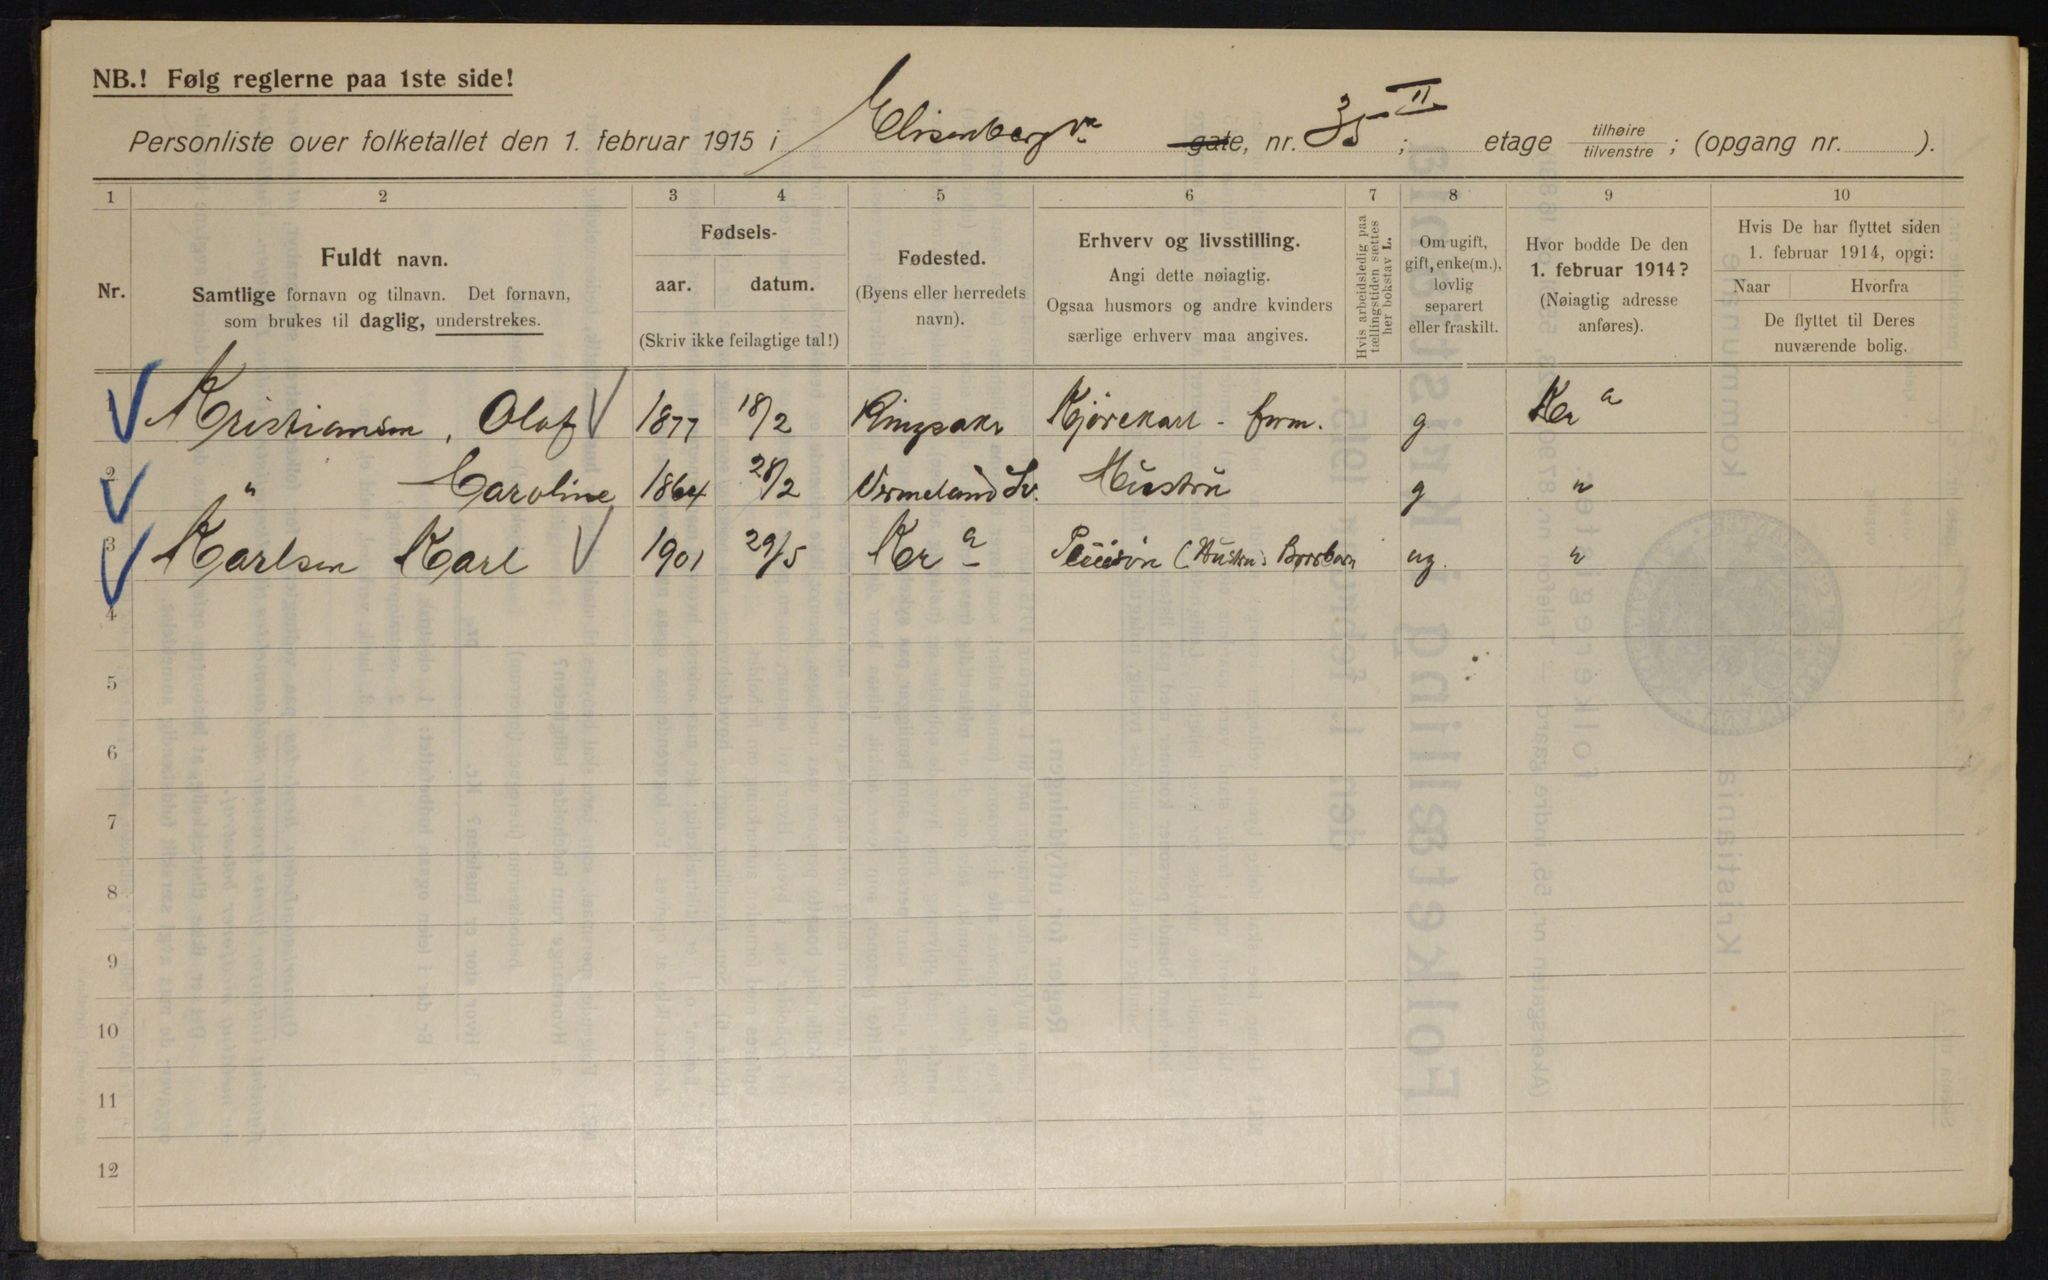 NB.! Følg reglerne paa 1ste side!
Personliste over folketallet den 1. februar 1915 i Elisenbergv. gate, nr. 35 II; etage tilhøire tilvenstre; (opgang nr. ).
1 2 3 4 5 6 7 8 9 10
Nr.
Fuldt navn.
Samtlige fornavn og tilnavn. Det fornavn,
som brukes til daglig, understrekes.
Fødsels-
aar. datum.
(Skriv ikke feilagtige tal!)
Fødested.
(Byens eller herredets
navn).
Erhverv og livsstilling.
Angi dette nøiagtig.
Ogsaa husmors og andre kvinders
særlige erhverv maa angives.
Hvis arbeidsledig paa
tællingstiden sættes
her bokstav L.
Om ugift,
gift, enke(m.),
lovlig
separert
eller fraskilt.
Hvor bodde De den
1. februar 1914?
(Nøiagtig adresse
anføres).
Hvis De har flyttet siden
1. februar 1914, opgi:
Naar Hvorfra
De flyttet til Deres
nuværende bolig.
1 Kristiansen, Olaf 1877 18/2 Ringsaker Kjørekarl - g Kr a
2 " Caroline 1864 28/2 Vermeland Sv. Hustru g "
3 Karlsen Karl 1901 29/5 Kr a (Hustru: ug. "
4
5
6
7
8
9
10
11
12